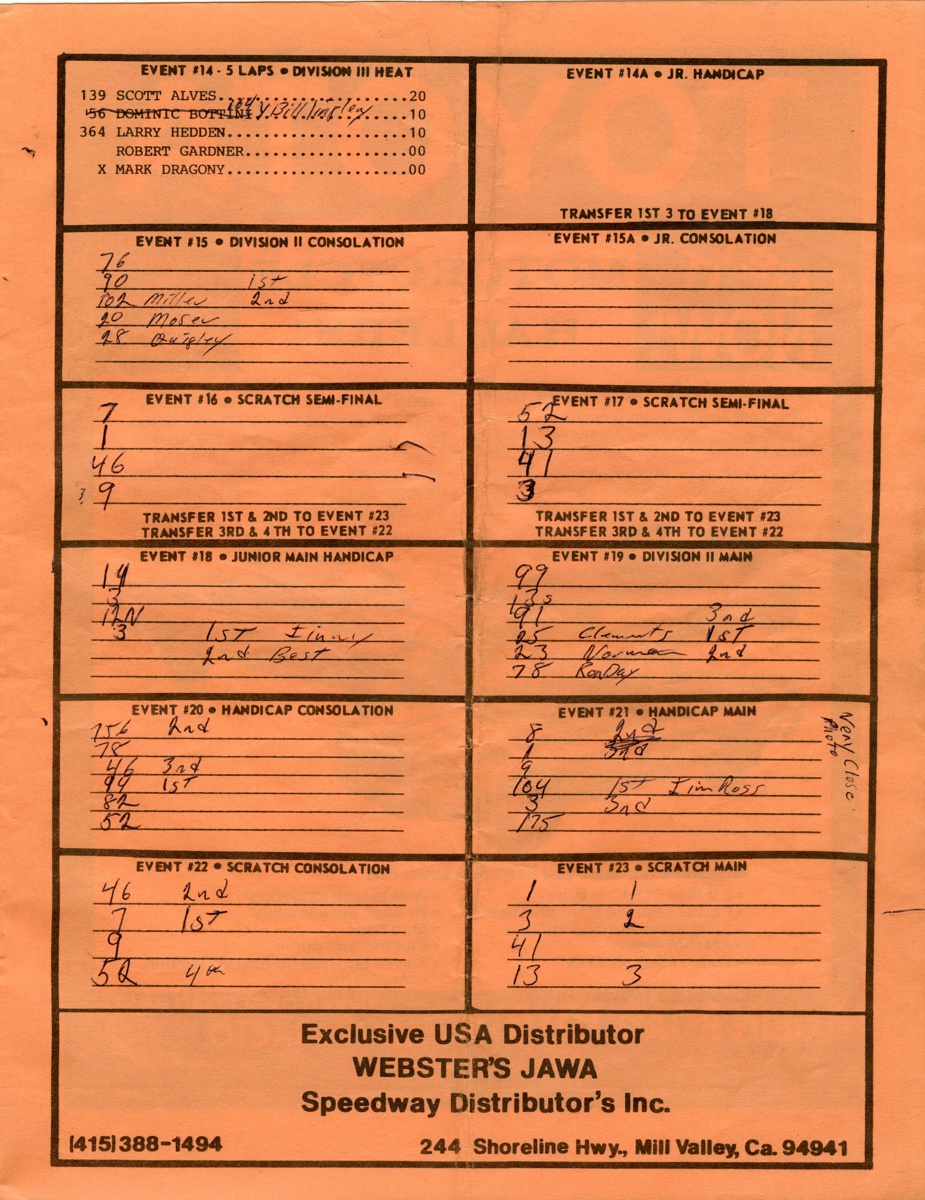 EVENT #14 - 5 LAPS • DIVISION III HEAT
139 SCOTT ALVES........................20
56 DOMINIC BOTTINI Bill ..........10
364 LARRY HEDDEN......................10
ROBERT GARDNER....................00
X MARK DRAGONY......................00
EVENT #14A • JR. HANDICAP
TRANSFER 1ST 3 TO EVENT #18
EVENT #15 • DIVISION II CONSOLATION
76
90 1st
102 Miller 2nd
20 Moser
28 Quigley
EVENT #15A • JR. CONSOLATION
EVENT #16 • SCRATCH SEMI-FINAL
7
1
46
9
TRANSFER 1ST & 2ND TO EVENT #23
TRANSFER 3RD & 4TH TO EVENT #22
EVENT #17 • SCRATCH SEMI-FINAL
52
13
41
3
TRANSFER 1ST & 2ND TO EVENT #23
TRANSFER 3RD & 4TH TO EVENT #22
EVENT #18 • JUNIOR MAIN HANDICAP
14
3
12N
3 1ST Jimmy
2nd Best
EVENT #19 • DIVISION II MAIN
99
91 3rd
25 Clements 1ST
23 Norman 2nd
78 Ron Day
EVENT #20 • HANDICAP CONSOLATION
156 2nd
78
46 3rd
99 1st
82
52
EVENT #21 • HANDICAP MAIN
8 2nd
1 3rd
9
104 1st Jim Ross
3 3rd
175
Very Close
Photo
EVENT #22 • SCRATCH CONSOLATION
46 2nd
7 1st
9
52 4th
EVENT #23 • SCRATCH MAIN
1 1
3 2
41
13 3
Exclusive USA Distributor
WEBSTER'S JAWA
Speedway Distributor's Inc.
(415)388-1494 244 Shoreline Hwy., Mill Valley, Ca. 94941